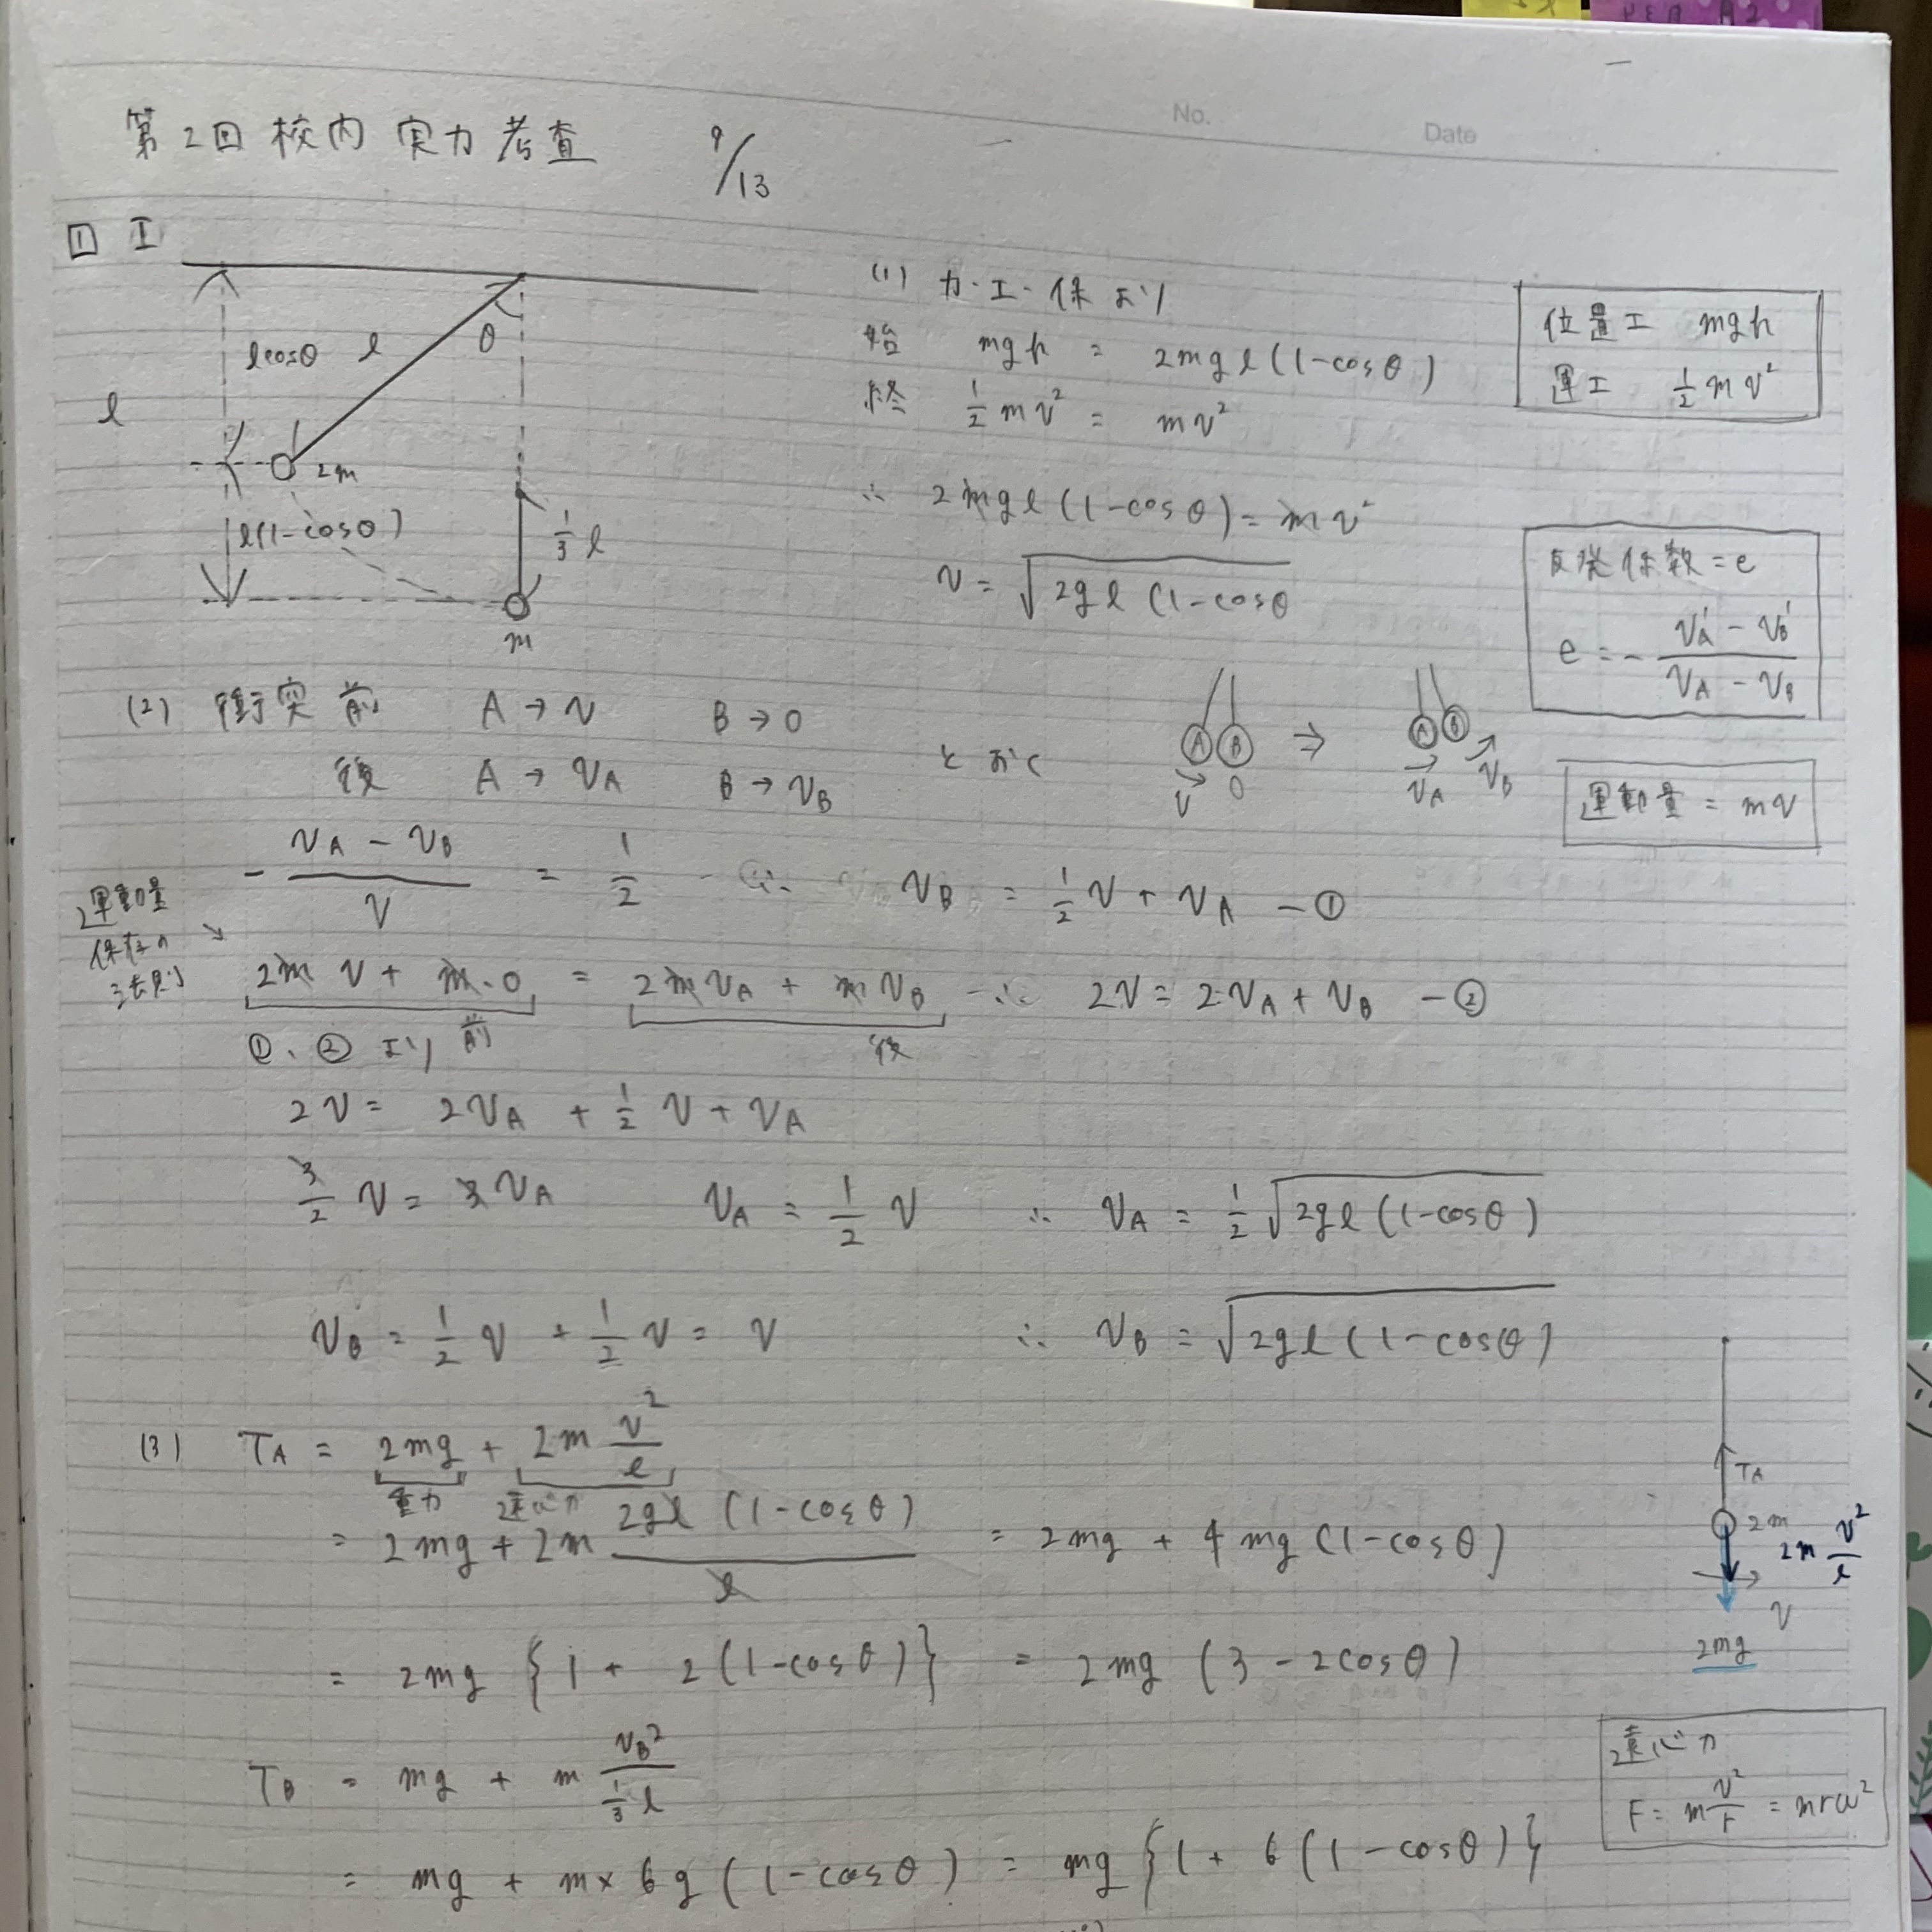 No.
Date
第2回校内実力考査 9/13
1 I
lcosθ l θ
l
2m
l(1-cosθ)
1/3 l
m
(1) 力・エ・保より
始 mgh = 2mgl(1-cosθ)
終 1/2 mv² = mv²
∴ 2mgl(1-cosθ) = mv²
v = √2gl(1-cosθ
位置エ mgh
運エ 1/2 mv²
反発係数 = e
e = - (vA' - vB')/(vA - vB)
運動量 = mv
(2) 衝突前 A → v B → 0
後 A → vA B → vB とおく
A B ⇒ A B
v 0 vA vB
- (vA - vB)/v = 1/2 ∴ vB = 1/2 v + vA - ①
運動量
保存の
法則
2m v + m・0 = 2m vA + m vB ∴ 2v = 2vA + vB - ②
①、② より 前 後
2v = 2vA + 1/2 v + vA
3/2 v = 3vA vA = 1/2 v ∴ vA = 1/2 √2gl(1-cosθ)
vB = 1/2 v + 1/2 v = v ∴ vB = √2gl(1-cosθ)
(3) TA = 2mg + 2m v²/l
重力 遠心力
= 2mg + 2m 2gl(1-cosθ)/l = 2mg + 4mg(1-cosθ)
= 2mg{1 + 2(1-cosθ)} = 2mg(3-2cosθ)
TA
2m
2m v²/l
v
2mg
TB = mg + m vB²/(1/3 l)
= mg + m×6g(1-cosθ) = mg{1 + 6(1-cosθ)}
遠心力
F = m v²/r = mrω²